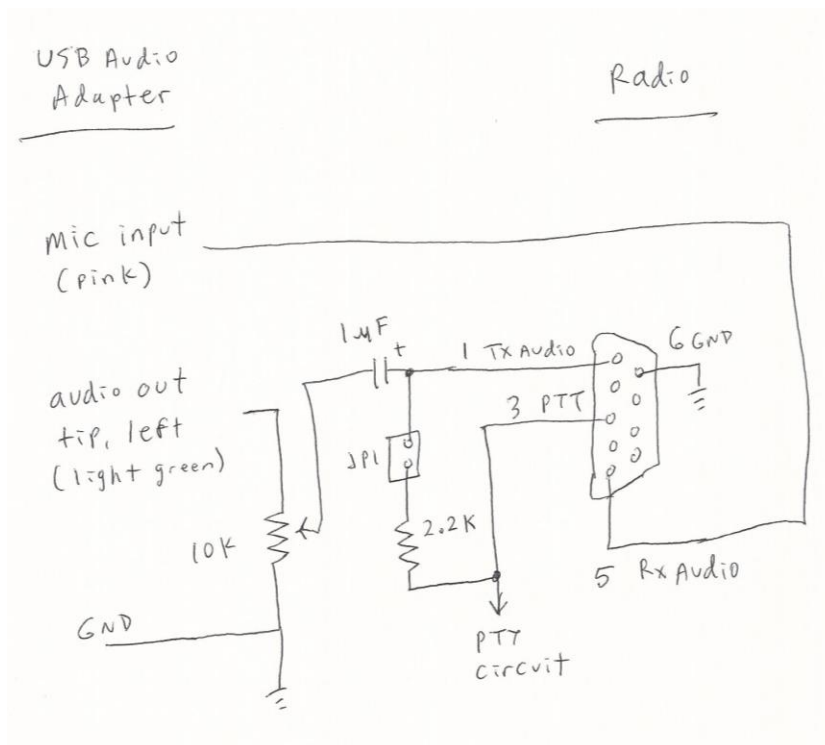 USB Audio
Adapter
Radio
mic input
(pink)
1µF
+
1 Tx Audio
6 GND
audio out
tip, left
(light green)
3 PTT
JP1
10K
2.2K
5 Rx Audio
GND
PTT
circuit